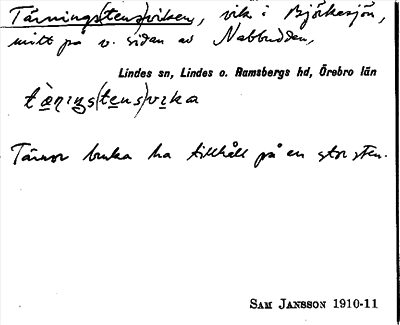 Tärnings(tens)viken, vik i Björkasjön,
mitt på v. sidan av Nabbudden,
Lindes sn, Lindes o. Ramsbergs hd, Örebro län
tæ̀ṇiŋs(tens)vika
Tärnor bruka ha tillhåll på en stor sten.
SAM JANSSON 1910-11